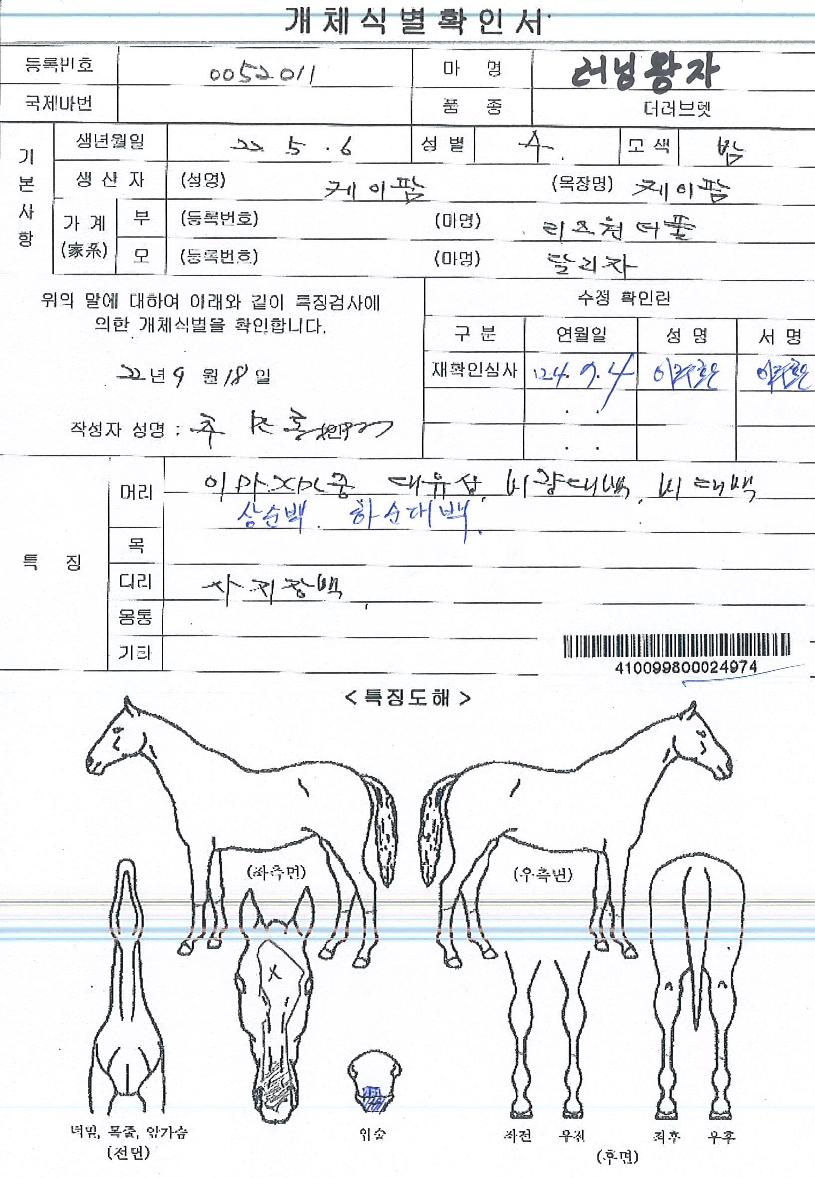 개체식별확인서
등록번호 0052011 마 명 러닝왕자
국제마번 품 종 더러브렛
기본사항
생년월일 22. 5. 6 성 별 수 모 색 밤
생 산 자 (성명) 케이팜 (목장명) 케이팜
가 계 (家系)
부 (등록번호) (마명) 리즈원더풀
모 (등록번호) (마명) 달리자
위의 말에 대하여 아래와 같이 특징검사에
의한 개체식별을 확인합니다.
22년 9 월 18 일
작성자 성명 :
수정 확인란
구 분 연월일 성 명 서 명
재확인심사 '24. 9. 4
. .
. .
특 징
머리 대유성, 비량대백, 비대백
상순백. 하순대백.
목
다리 사지장백
몸통
기타
410099800024974
< 특징도해 >
(좌측면) (우측면)
X
턱밑, 목줄, 앞가슴
(전면)
입술
좌전 우전 좌후 우후
(후면)